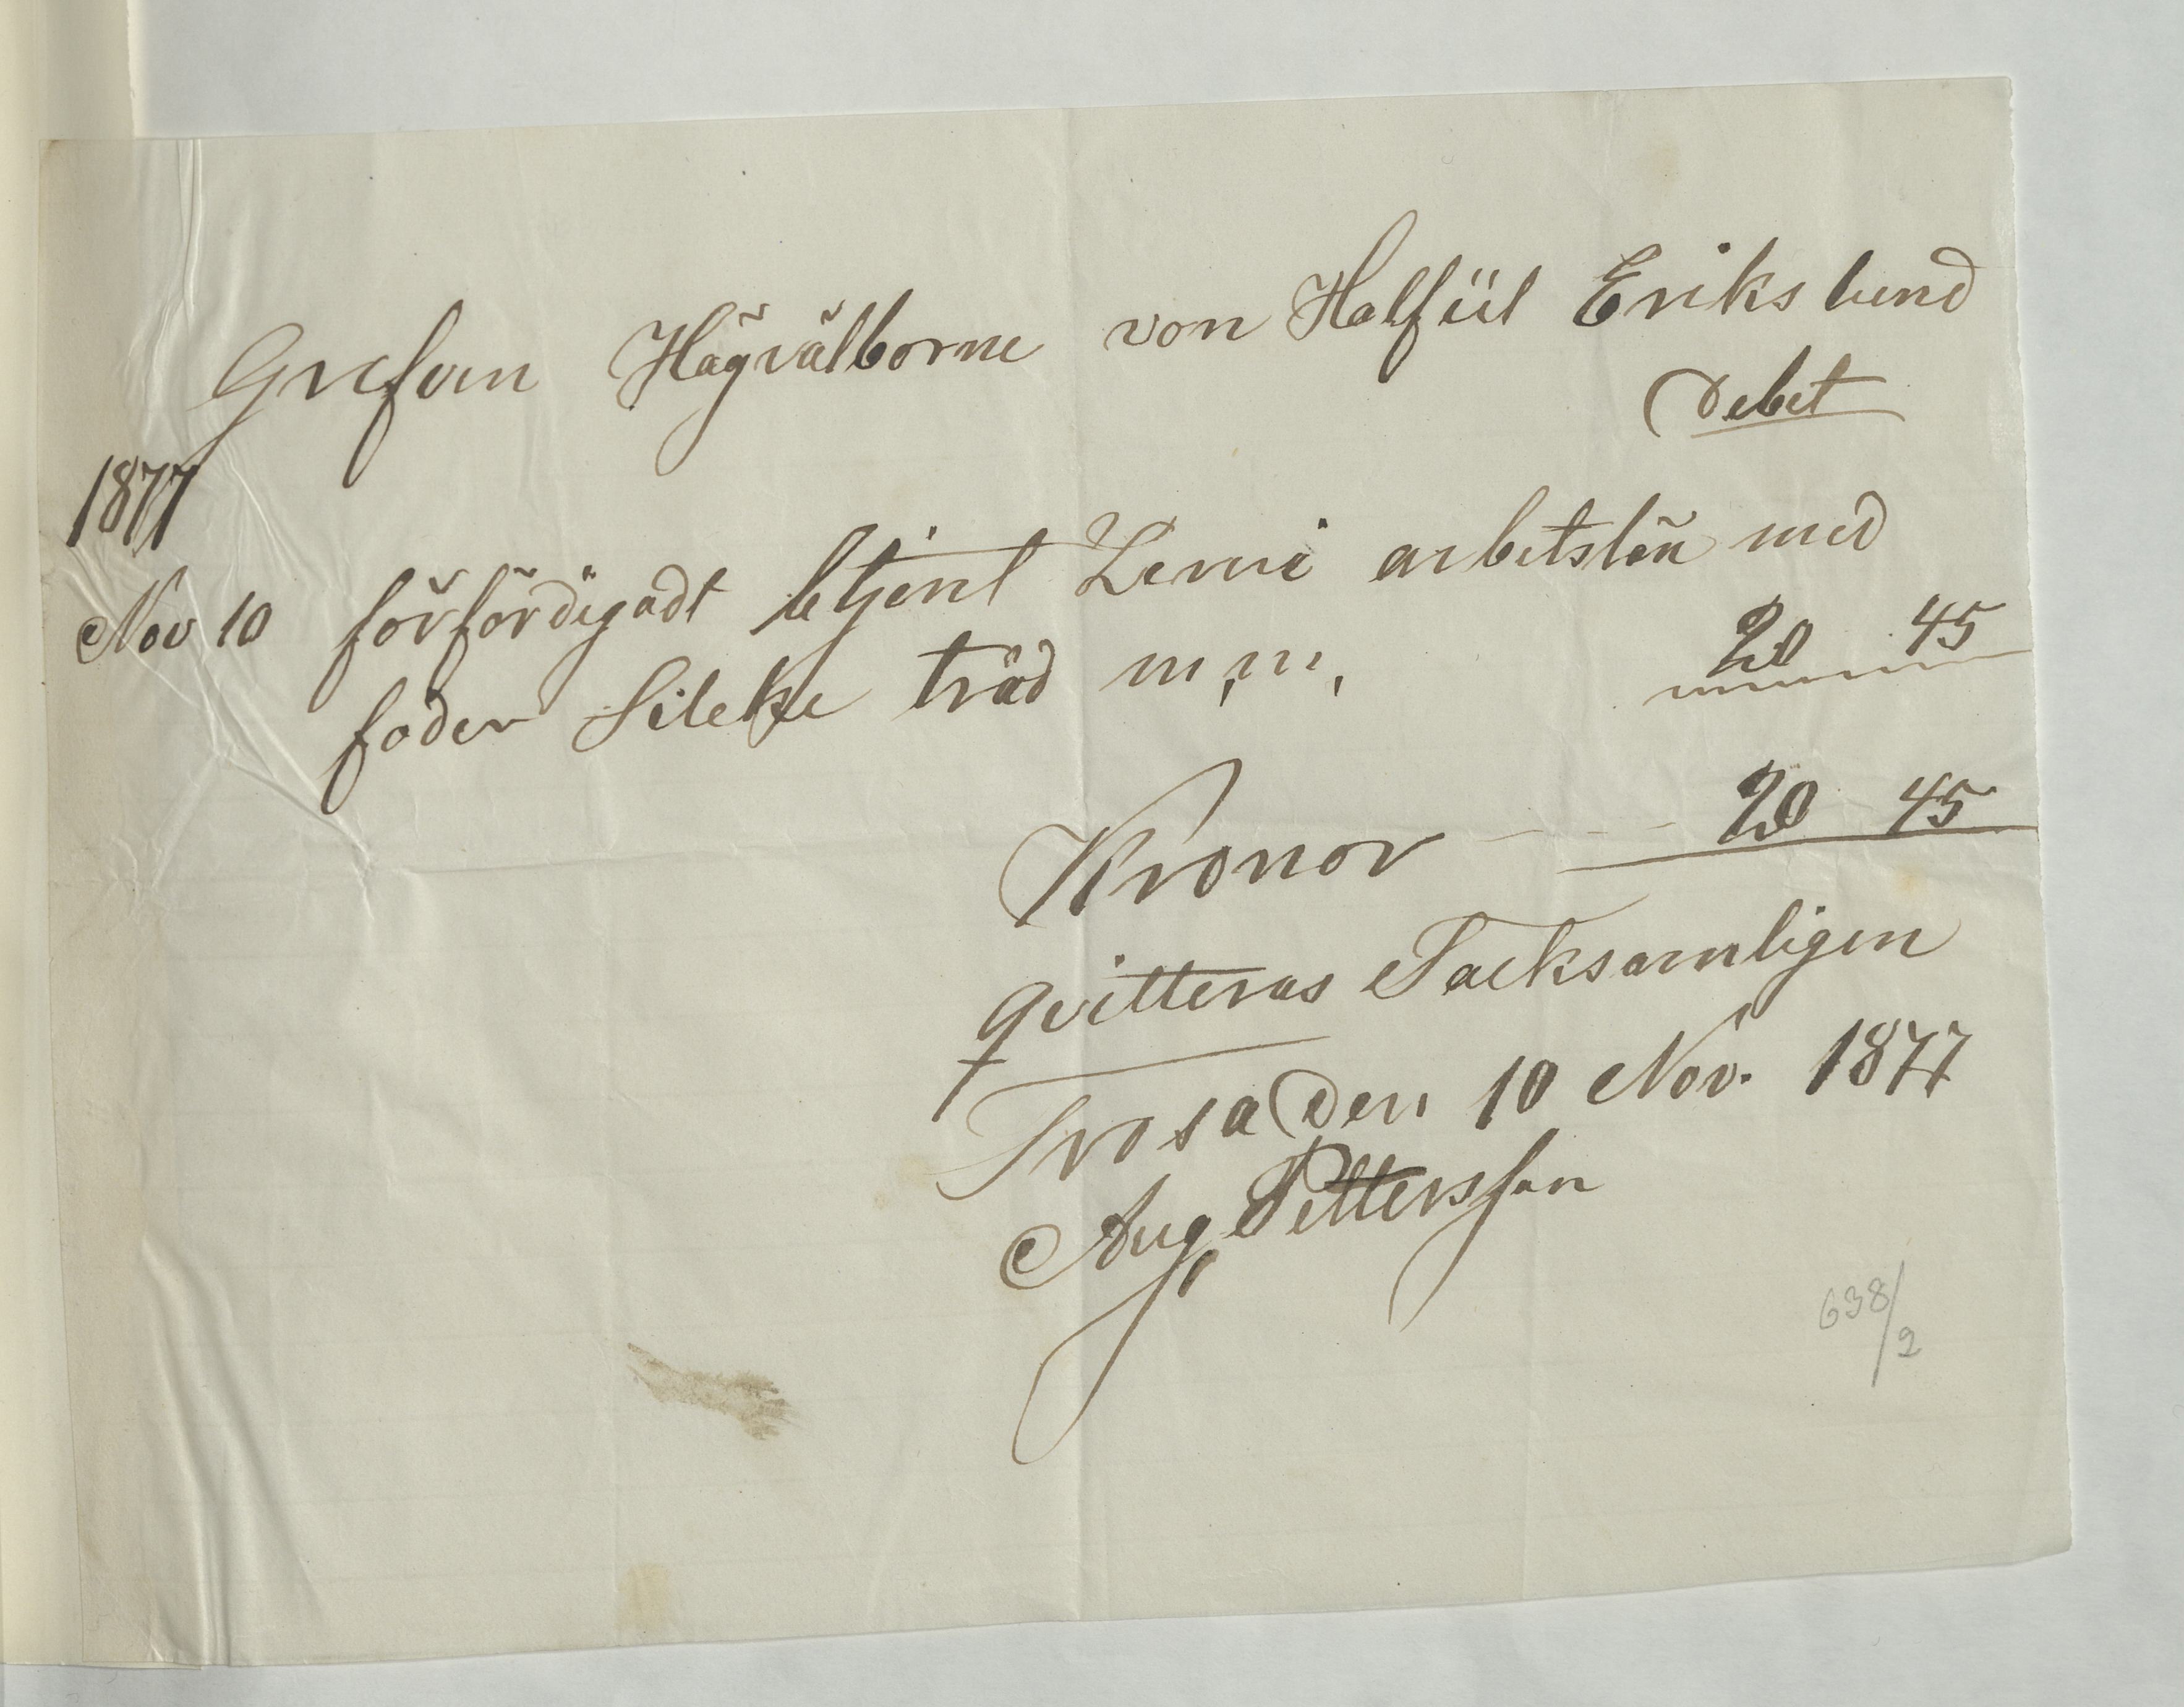 Grefvin Högvälborne von Halfiil Erikslund
Debet
1877
Nov 10 förfördigadt betjent Levré arbetslön med
foder Sileke tråd m, m, 20 45
Kronor - - - 20 45
qvitteras Tacksamligen
Trosa den 10 Nov. 1877
Aug Pettersson
638/2